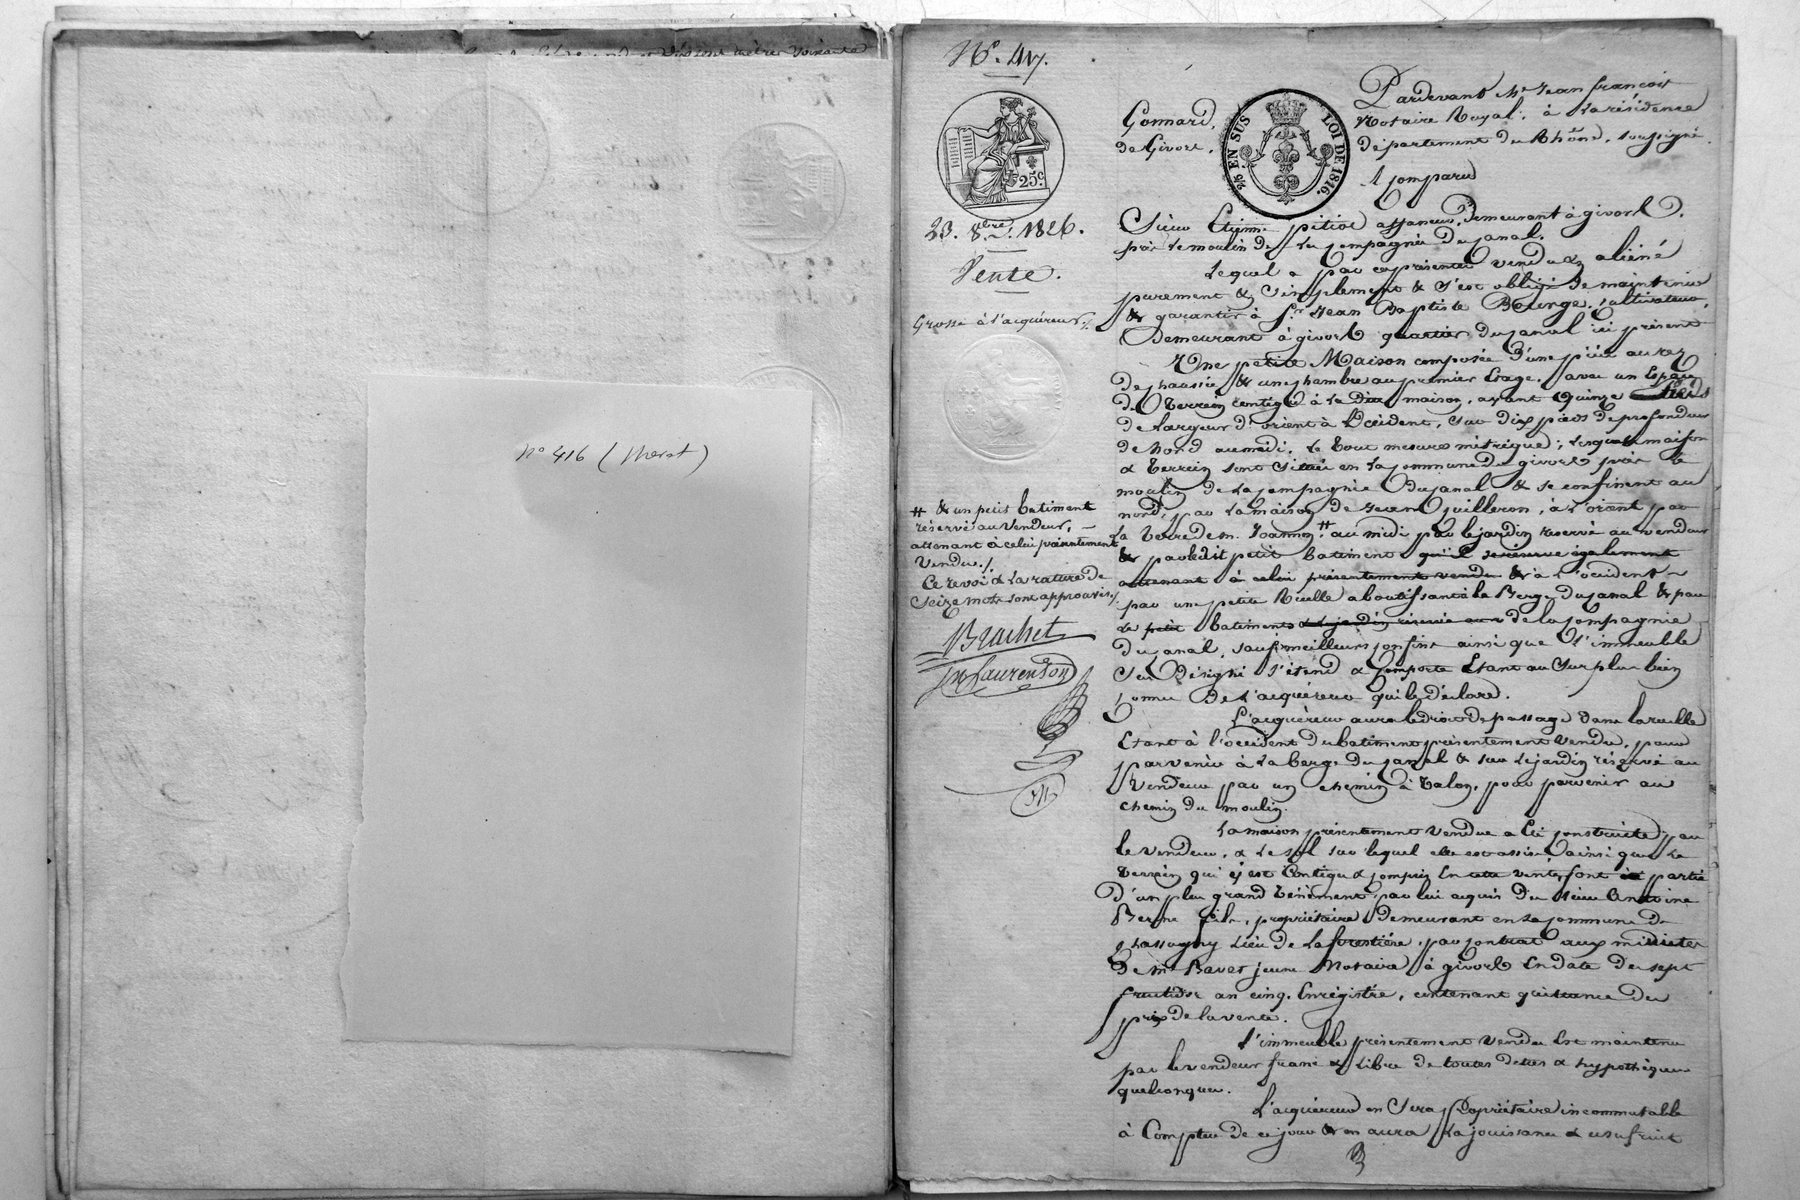 N° 416 (Therat)
N° 417.
25 c.
2/5 EN SUS LOI DE 1816.
23. 8bre. 1826.
Vente.
Grosse à l'acquéreur /.
# & un petit batiment
réservé au vendeur,
attenant à celui présentement
vendu /.
Ce renvoi & la rature de
seize mots sont approuvés /.
Brachet
Laurendon
Pardevant Me Jean françois
Gonnard, Notaire Royal, à la résidence
de Givors, département du Rhône, soussigné
A comparu
Sieur Etienne pitiot demeurant à givors
près le moulin de la Compagnie du canal.
Lequel a par ces présentes vendu & aliéné
purement & simplement & s'est obligé de maintenir
& garantir à Sr. Jean Baptiste cultivateur,
Demeurant à givors quartier du canal ici présent
Une petite Maison composée d'une pièce au rez
de chaussée & une chambre au premier Etage, avec un Espace
de Terrein contigu à la dite maison, ayant quinze pieds
de largeur d'orient à Occident, sur dix pieds de profondeur
de Nord au midi, le tout mesure métrique; lesquels maison
& terrein sont situés en la commune de givors près le
moulin de la compagnie du canal & se confinent au
nord, par la maison de Jean guilleron, à l'orient par
la terre de m. Joannon # au midi par le jardin réservé au vendeur
& par ledit petit batiment qu'il se réserve également
attenant à celui présentement vendu & à l'occident
par une petite Ruelle aboutissant à la Berge du canal & par
le petit batiment & le jardin réservé au v de la compagnie
du canal, sauf meilleurs confins ainsi que l'immeuble
sus Désigné s'étend & comporte Etant au surplus bien
connu de l'acquéreur qui le déclare.
L'acquéreur aura le droit de passage dans la ruelle
Etant à l'occident du batiment présentement vendu, pour
parvenir à la berge du canal & sur le jardin réservé au
vendeur par un chemin à talon, pour parvenir au
chemin du moulin.
La maison présentement vendue a Eté construite par
le vendeur, & le sol sur lequel elle est assise ainsi que le
terrein qui y est contigu & compris en cette vente, font partie
D'un plus grand tènement par lui acquis du sieur Antoine
fils, propriétaire demeurant en la commune de
Chassagny lieu de la forestière, par contrat aux minutes
de me Bavet jeune Notaire à givors En date du sept
fructidor an cinq, Enrégistré, contenant quittance du
prix de la vente.
L'immeuble présentement vendu Est maintenu
par le vendeur franc & libre de toutes dettes & hypothèques
quelconques.
L'acquéreur en sera Propriétaire incommutable
à Compter de ce jour & en aura la jouissance & usufruit